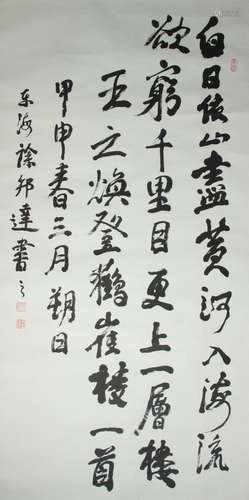 白日依山盡黄河入海流
欲窮千里目更上一層樓
王之焕登鸛雀樓一首
甲申春三月朔日
东海徐邦達書之